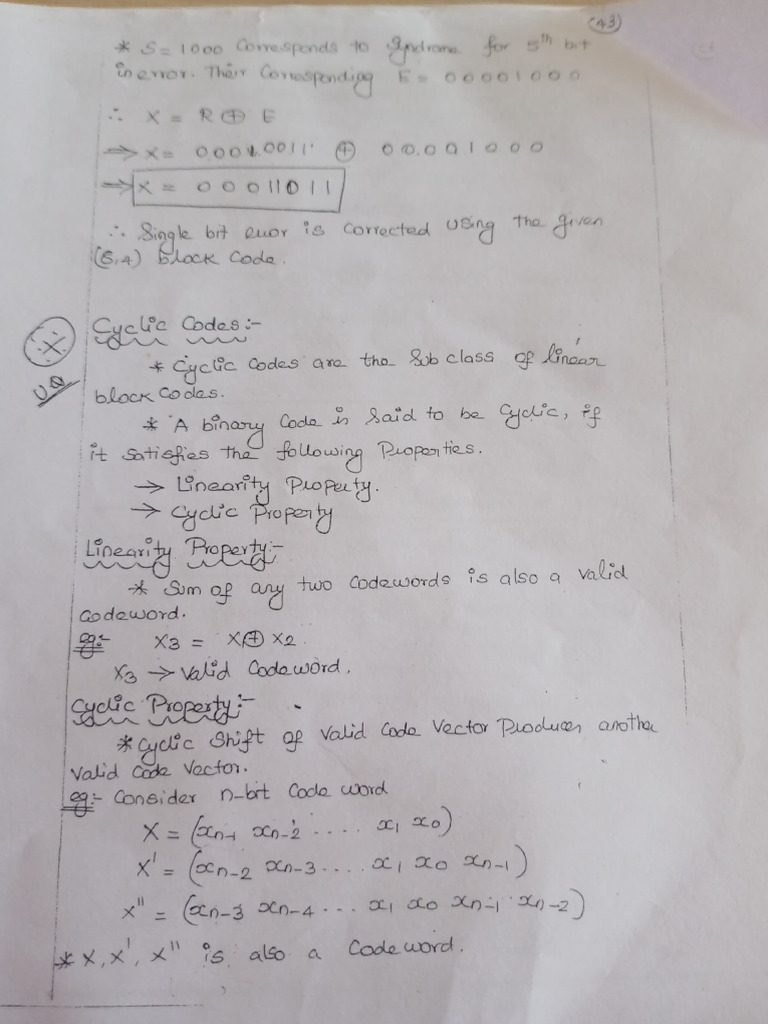 (43)
* S = 1000 Corresponds to Syndrome for 5th bit
in error. Their Corresponding E = 00001000
∴ X = R ⊕ E
⇒ X = 00010011 ⊕ 00001000
⇒ X = 00011011
∴ Single bit error is corrected using the given
(8,4) block code.
Cyclic Codes:-
* Cyclic Codes are the Sub class of linear
UQ
block codes.
* A binary Code is Said to be Cyclic, if
it satisfies the following Properties.
→ Linearity Property.
→ Cyclic Property
Linearity Property:-
* Sum of any two Codewords is also a valid
Codeword.
eg:- X3 = X ⊕ X2
X3 → Valid Codeword.
Cyclic Property:-
* Cyclic Shift of Valid Code Vector Produces another
Valid Code Vector.
eg:- Consider n-bit Code word
X = (xn-1 xn-2 .... x1 x0)
X' = (xn-2 xn-3 .... x1 x0 xn-1)
X'' = (xn-3 xn-4 ... x1 x0 xn-1 xn-2)
* X, X', X'' is also a Codeword.